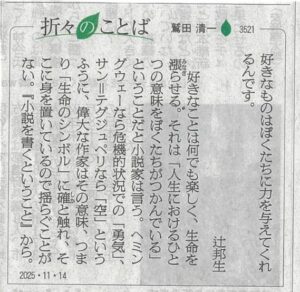 折々のことば
鷲田 清一
3521
好きなものはぼくたちに力を与えてくれ
るんです。
辻邦生
好きなことは何でも楽しく、生命を
漲らせる。それは「人生におけるひと
つの意味をぼくたちがつかんでいる」
ということだと小説家は言う。ヘミン
グウェーなら危機的状況での「勇気」、
サン=テグジュペリなら「空」という
ふうに、偉大な作家はその意味、つま
り「生命のシンボル」に確と触れ、そ
こに身を置いているので揺らぐことが
ない。『小説を書くということ』から。
2025・11・14